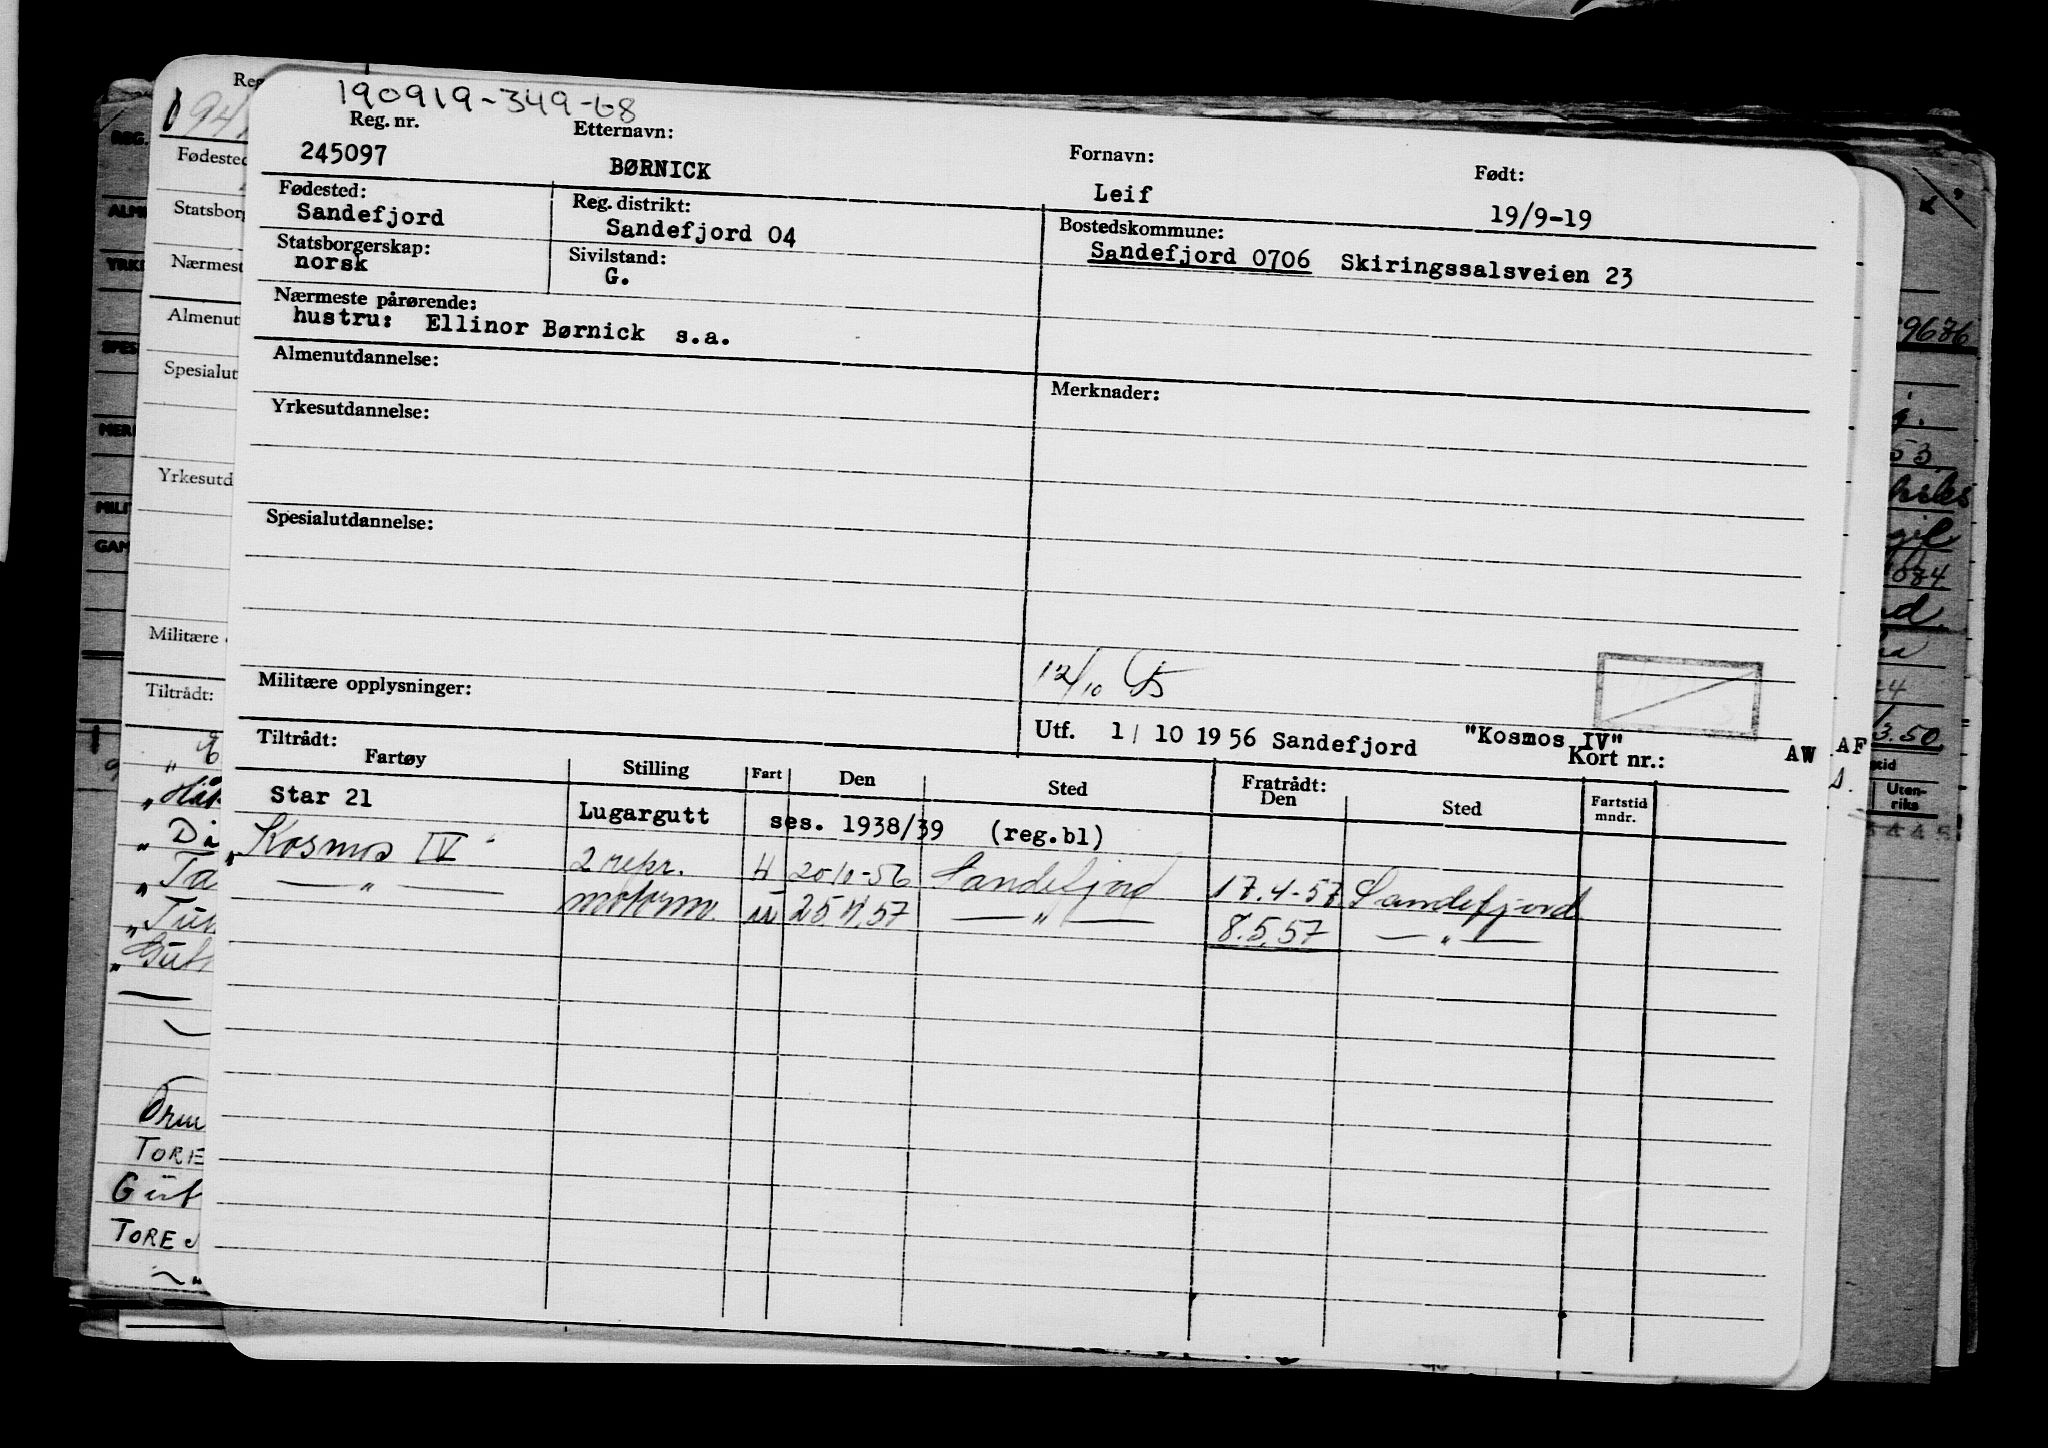 190919-349-68
Reg. nr. Etternavn: Fornavn: Født:
245097 BØRNICK Leif 19/9-19
Fødested: Reg. distrikt: Bostedskommune:
Sandefjord Sandefjord 04 Sandefjord 0706 Skiringssalsveien 23
Statsborgerskap: Sivilstand:
norsk G.
Nærmeste pårørende:
hustru: Ellinor Børnick s.a.
Almenutdannelse: Merknader:
Yrkesutdannelse:
Spesialutdannelse:
12/10
Militære opplysninger:
Utf. 1/ 10 1956 Sandefjord "Kosmos IV" Kort nr.: AW AF
Tiltrådt: Fratrådt:
Fartøy Stilling Fart Den Sted Den Sted Fartstid mndr.
Star 21 Lugargutt ses. 1938/39 (reg.bl)
"Kosmos IV" 2 repr. H 20-10-56 Sandefjord 17.4-57 Sandefjord
— " — motorm. 25.4.57 — " — 8.5.57 — " —
Reg
Fødested
Statsborg
Nærmest
Almenut
Spesialut
Yrkesutd
Militære
Tiltrådt:
TORE
TORE
9676
53
084
3.50
Uten-
riks